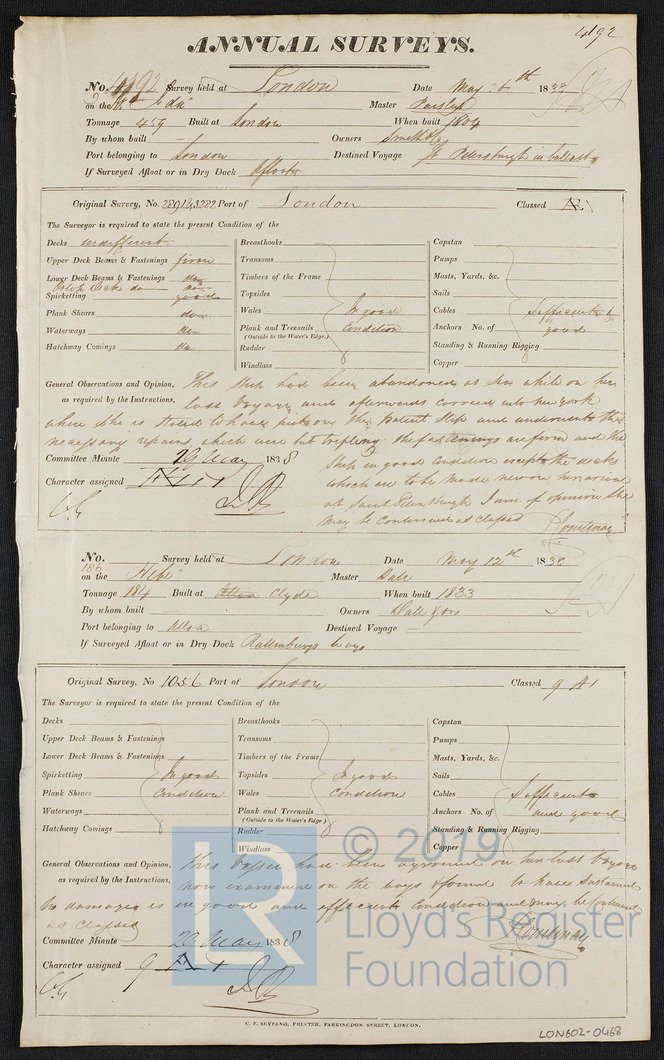 4192
ANNUAL SURVEYS.
No. 4192 Survey held at London Date May 6th 1838
on the Master
Tonnage 459 Built at London When built 1804
By whom built Owners Smith & Co
Port belonging to London Destined Voyage St Petersburgh in ballast
If Surveyed Afloat or in Dry Dock Afloat
Original Survey, No. 2891 & 3282 Port of London Classed
The Surveyor is required to state the present Condition of the
Decks indifferent
Upper Deck Beams & Fastenings firm
Lower Deck Beams & Fastenings do
Orlop Decks do do
Spirketting good
Plank Shears do
Waterways do
Hatchway Comings do
Breasthooks
Transoms
Timbers of the Frame
Topsides
Wales In good
Plank and Treenails condition
(Outside to the Water's Edge.)
Rudder
Windlass
Capstan
Pumps
Masts, Yards, &c.
Sails
Cables Sufficient &
Anchors No. of good
Standing & Running Rigging
Copper
General Observations and Opinion, This Ship had been abandoned at Sea while on her
as required by the Instructions, last Voyage and afterwards carried into New York
where she is Stated to have been on the Patent Slip and underwent the
necessary repairs, which were but trifling the fastenings are firm and the
Committee Minute 29 May 1838 Ship in good Condition except the decks
Character assigned which are to be made new on her arrival
at Saint Petersburgh I am of opinion She
may be Continued as Classed
Courtenay
No. 186 Survey held at London Date May 12th 1838
on the Hebe Master Dale
Tonnage 184 Built at Clyde When built 1833
By whom built Owners Dale & Son
Port belonging to Alloa Destined Voyage
If Surveyed Afloat or in Dry Dock Rattenburys ways
Original Survey, No 1056 Port of London Classed 9 A1
The Surveyor is required to state the present Condition of the
Decks
Upper Deck Beams & Fastenings
Lower Deck Beams & Fastenings
Spirketting In good
Plank Shears Condition
Waterways
Hatchway Comings
Breasthooks
Transoms
Timbers of the Frame
Topsides In good
Wales Condition
Plank and Treenails
(Outside to the Water's Edge.)
Rudder
Windlass
Capstan
Pumps
Masts, Yards, &c.
Sails
Cables Sufficient
Anchors No. of and good
Standing & Running Rigging
Copper
General Observations and Opinion, This Vessel had been aground on her last Voyage
as required by the Instructions, now examined on the ways & found to have Sustained
No damages is in good and efficient Condition and may be Continued
as Classed
Courtenay
Committee Minute 29 May 1838
Character assigned 9 A1
C. F. SEYFANG, PRINTER, FARRINGDON STREET, LONDON.
LON602-0468
LR
© 2019
Lloyd's Register
Foundation